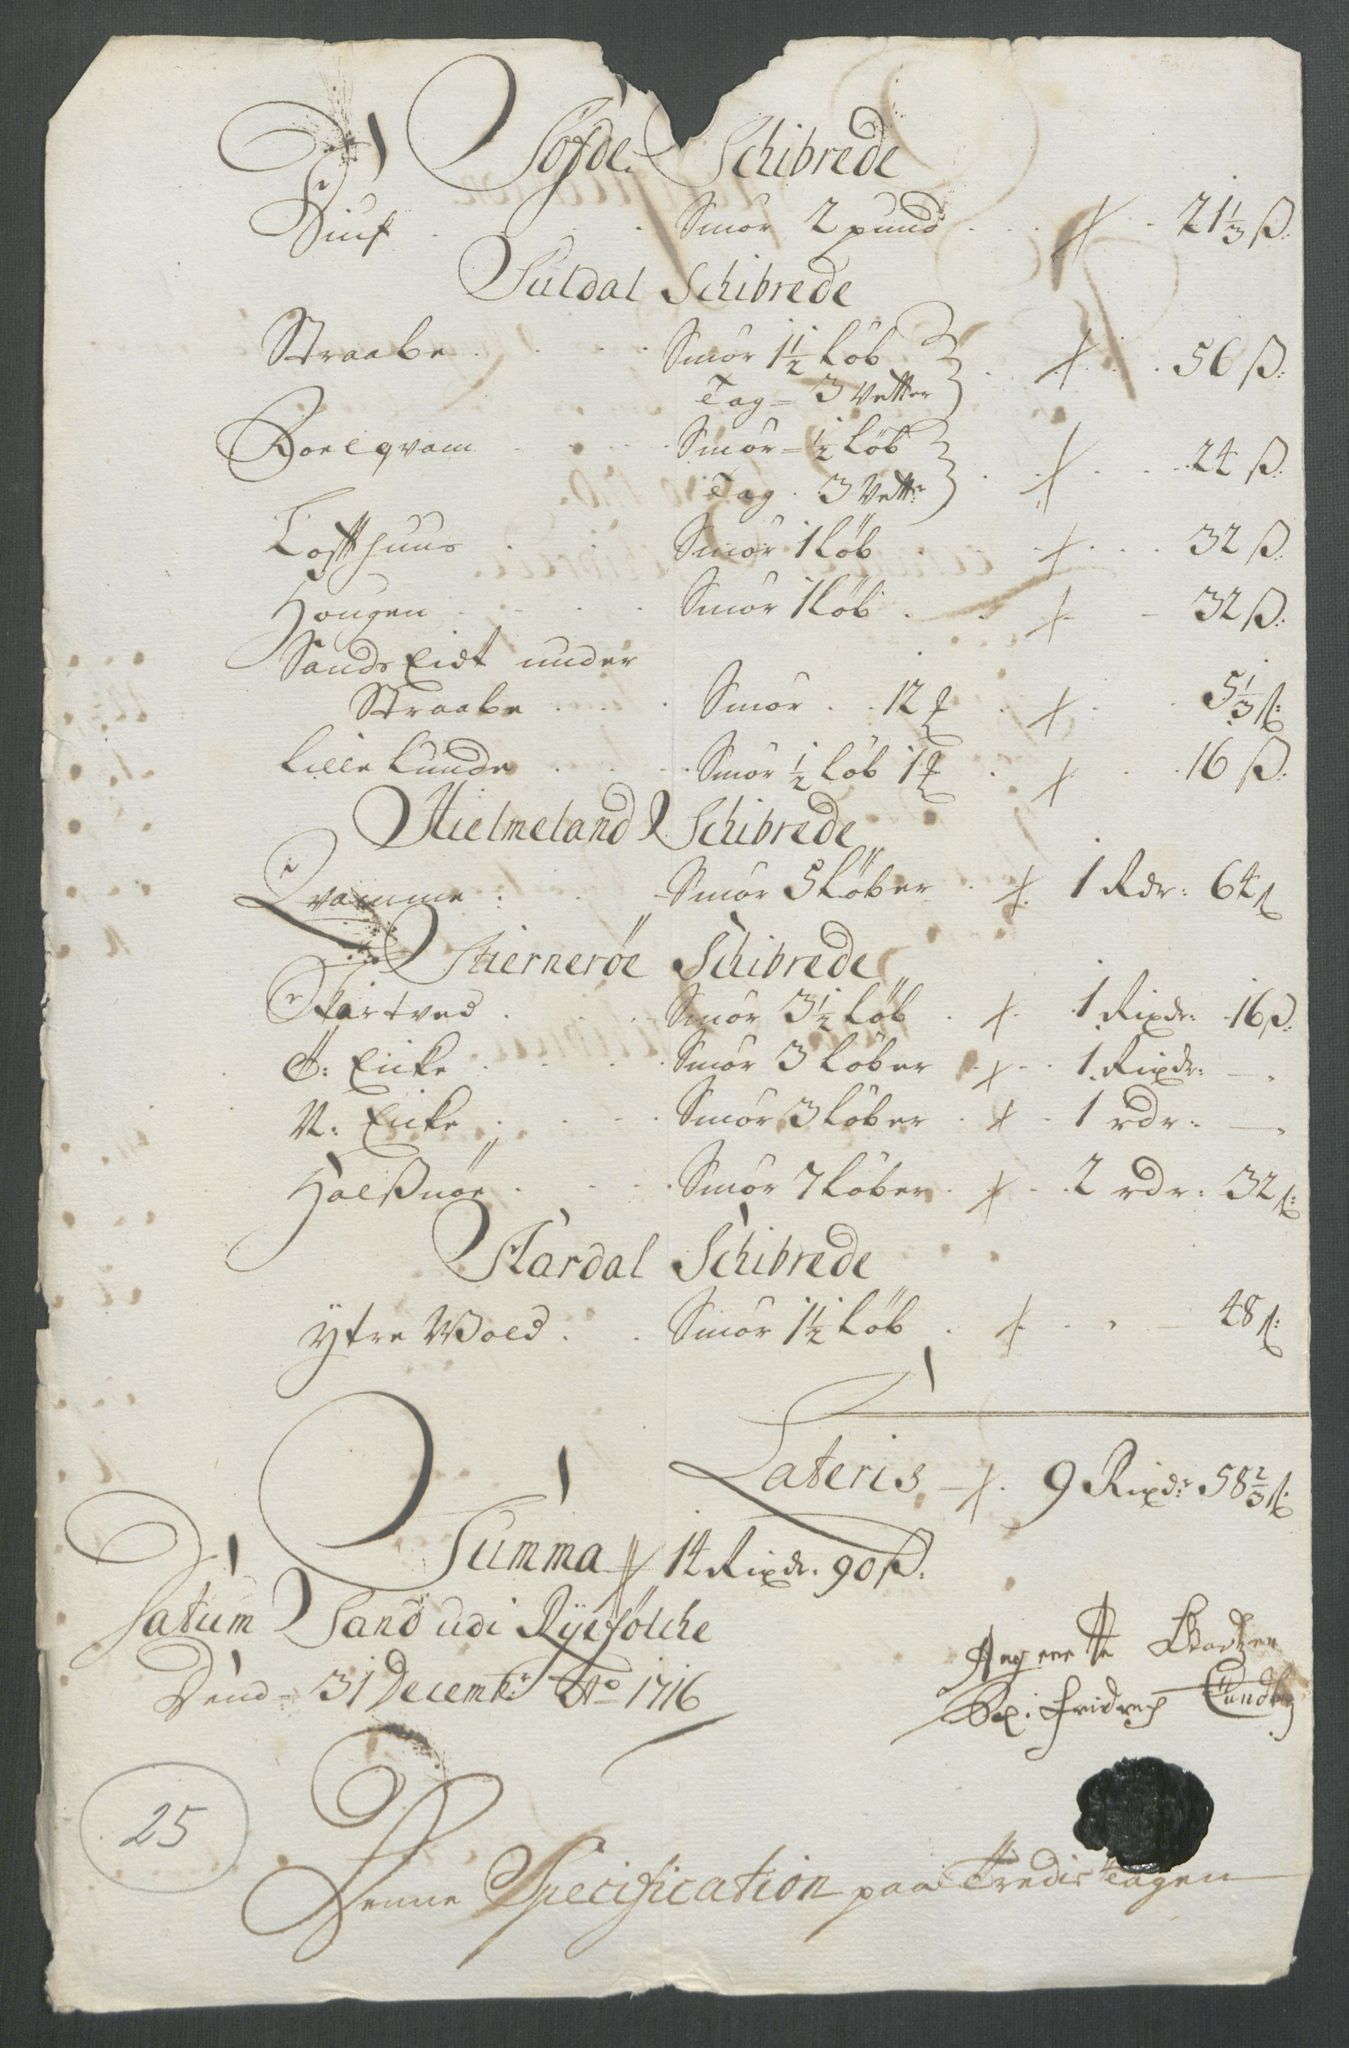 Søfde Schibrede
Smør 2 pund 21 1/3 ß:
Suldal Schibrede
Straabe Smør 1 1/2 Løb 56 ß:
Tag - 3 Vetter
Roelqvam Smør - 1/2 Løb 24 ß:
Tag 3 Vett:
Loffthuus Smør 1 Løb 32 ß:
Hougen Smør 1 Løb 32 ß:
Sands Eidt under
Straabe Smør 12 5 1/3 ß:
Lille Lunde Smør 1/2 Løb 1 16 ß:
Hielmeland Schibrede
Qvamme Smør 5 Løber 1 Rdr: 64 ß
Stiernerøe Schibrede
Kirtved Smør 3 1/2 Løb 1 Rixdr: 16 ß:
Ö: Eicke Smør 3 Løber 1 Rixdr: —
N: Eicke Smør 3 Løber 1 rdr: —
Halßnøe Smør 7 Løber 2 rdr: 32 ß:
Aardal Schibrede
Ytre Wold Smør 1 1/2 Løb 48 ß:
Lateris 9 Rixdr 58 2/3 ß:
Summa 14 Rixdr. 90 ß:
Datum Sand udi Ryefølche
Dend - 31 Decembr: Ao 1716
Sal: Fridrich Lundbg
25
Denne Specification paa Tredie Tagen